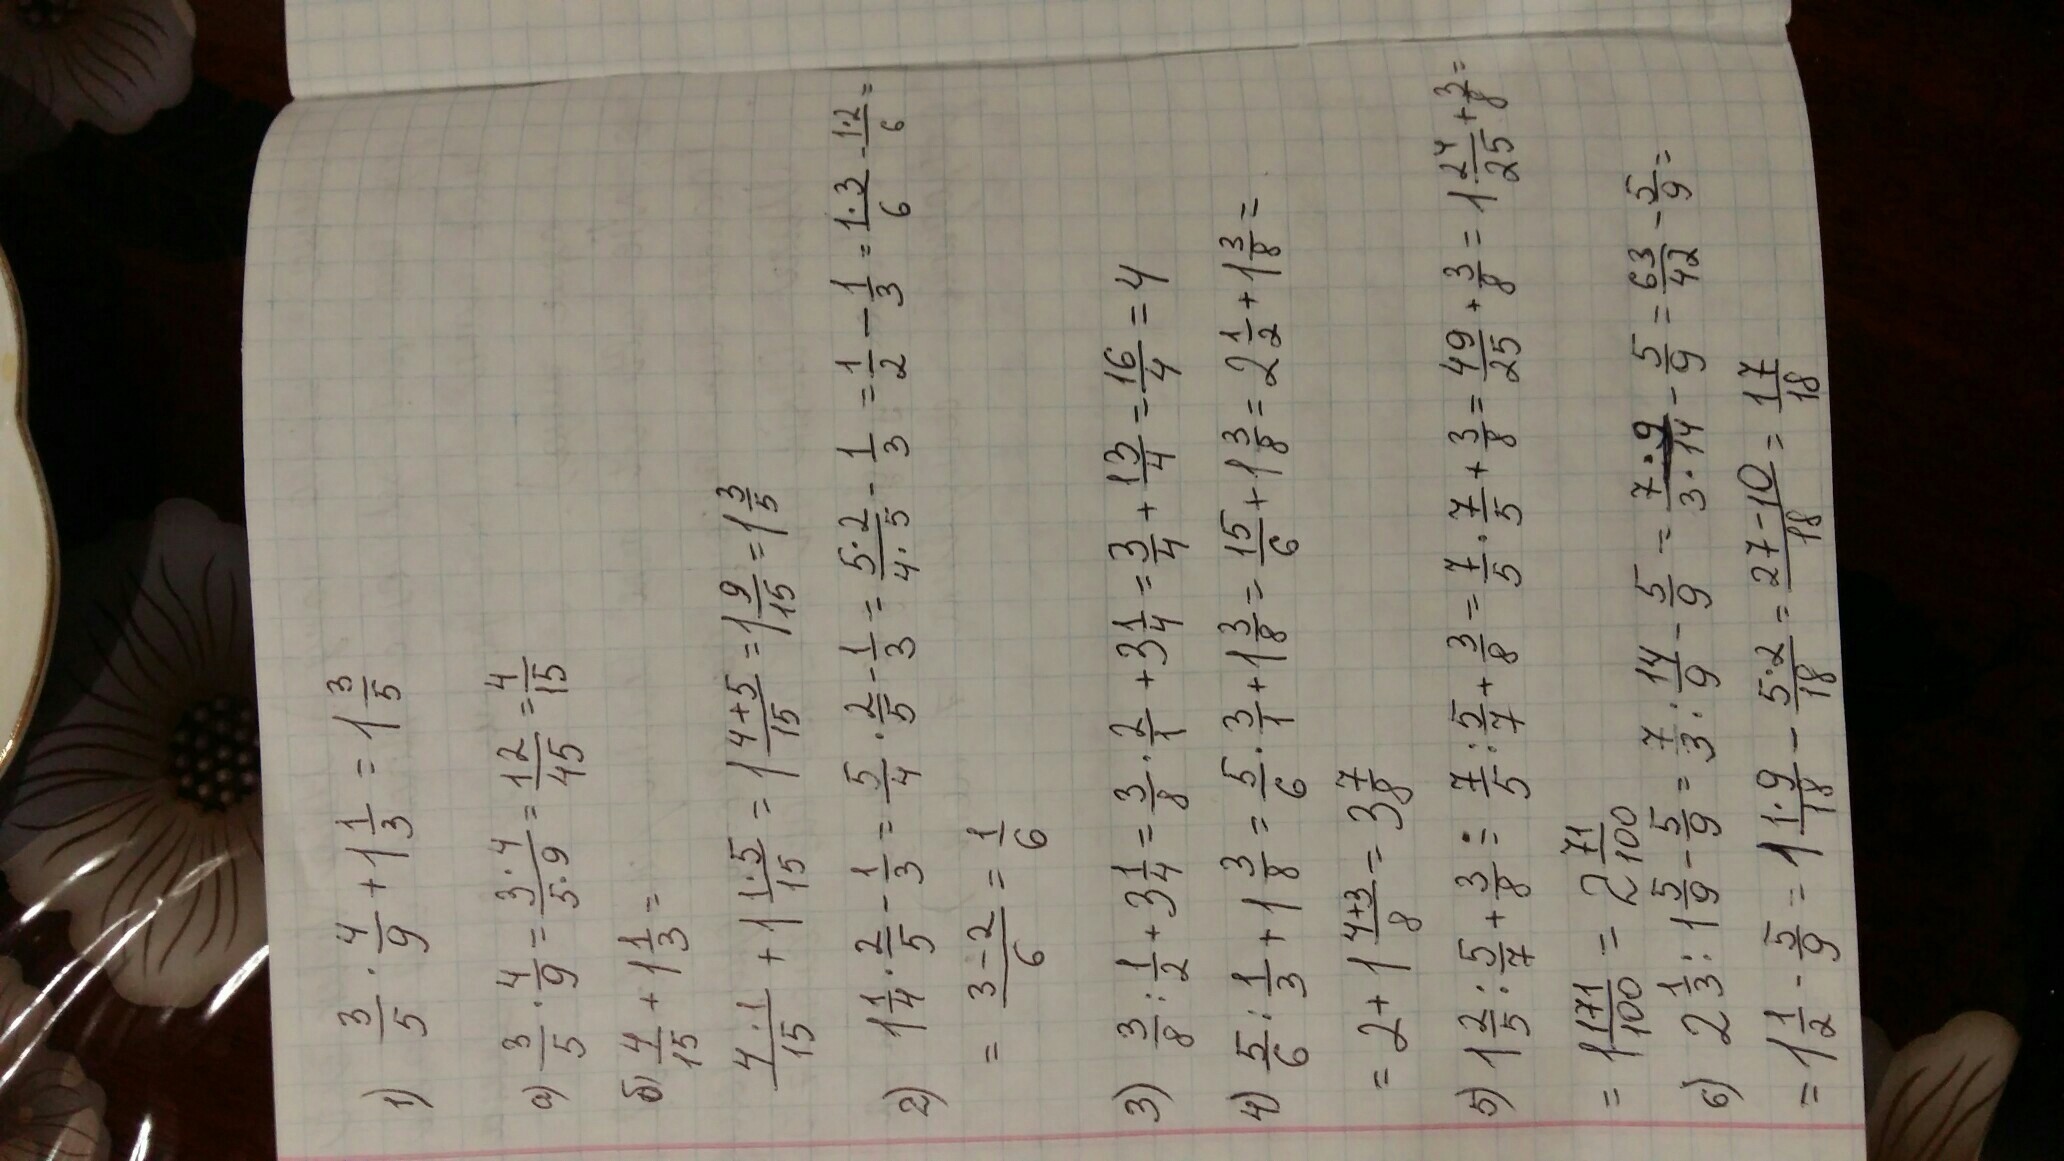 1) 3/5 · 4/9 + 1 1/3 = 1 3/5
а) 3/5 · 4/9 = 3·4/5·9 = 12/45 = 4/15
б) 4/15 + 1 1/3 =
4·1/15 + 1 1·5/15 = 1 4+5/15 = 1 9/15 = 1 3/5
2) 1 1/4 · 2/5 - 1/3 = 5/4 · 2/5 - 1/3 = 5·2/4·5 - 1/3 = 1/2 - 1/3 = 1·3/6 - 1·2/6 =
= 3-2/6 = 1/6
3) 3/8 : 1/2 + 3 1/4 = 3/8 · 2/1 + 3 1/4 = 3/4 + 13/4 = 16/4 = 4
4) 5/6 : 1/3 + 1 3/8 = 5/6 · 3/1 + 1 3/8 = 15/6 + 1 3/8 = 2 1/2 + 1 3/8 =
= 2 + 1 4+3/8 = 3 7/8
5) 1 2/5 : 5/7 + 3/8 = 7/5 : 5/7 + 3/8 = 7/5 · 7/5 + 3/8 = 49/25 + 3/8 = 1 24/25 + 3/8 =
= 1 171/100 = 2 71/100
6) 2 1/3 : 1 5/9 - 5/9 = 7/3 : 14/9 - 5/9 = 7·9/3·14 - 5/9 = 63/42 - 5/9 =
= 1 1/2 - 5/9 = 1 1·9/18 - 5·2/18 = 27-10/18 = 17/18